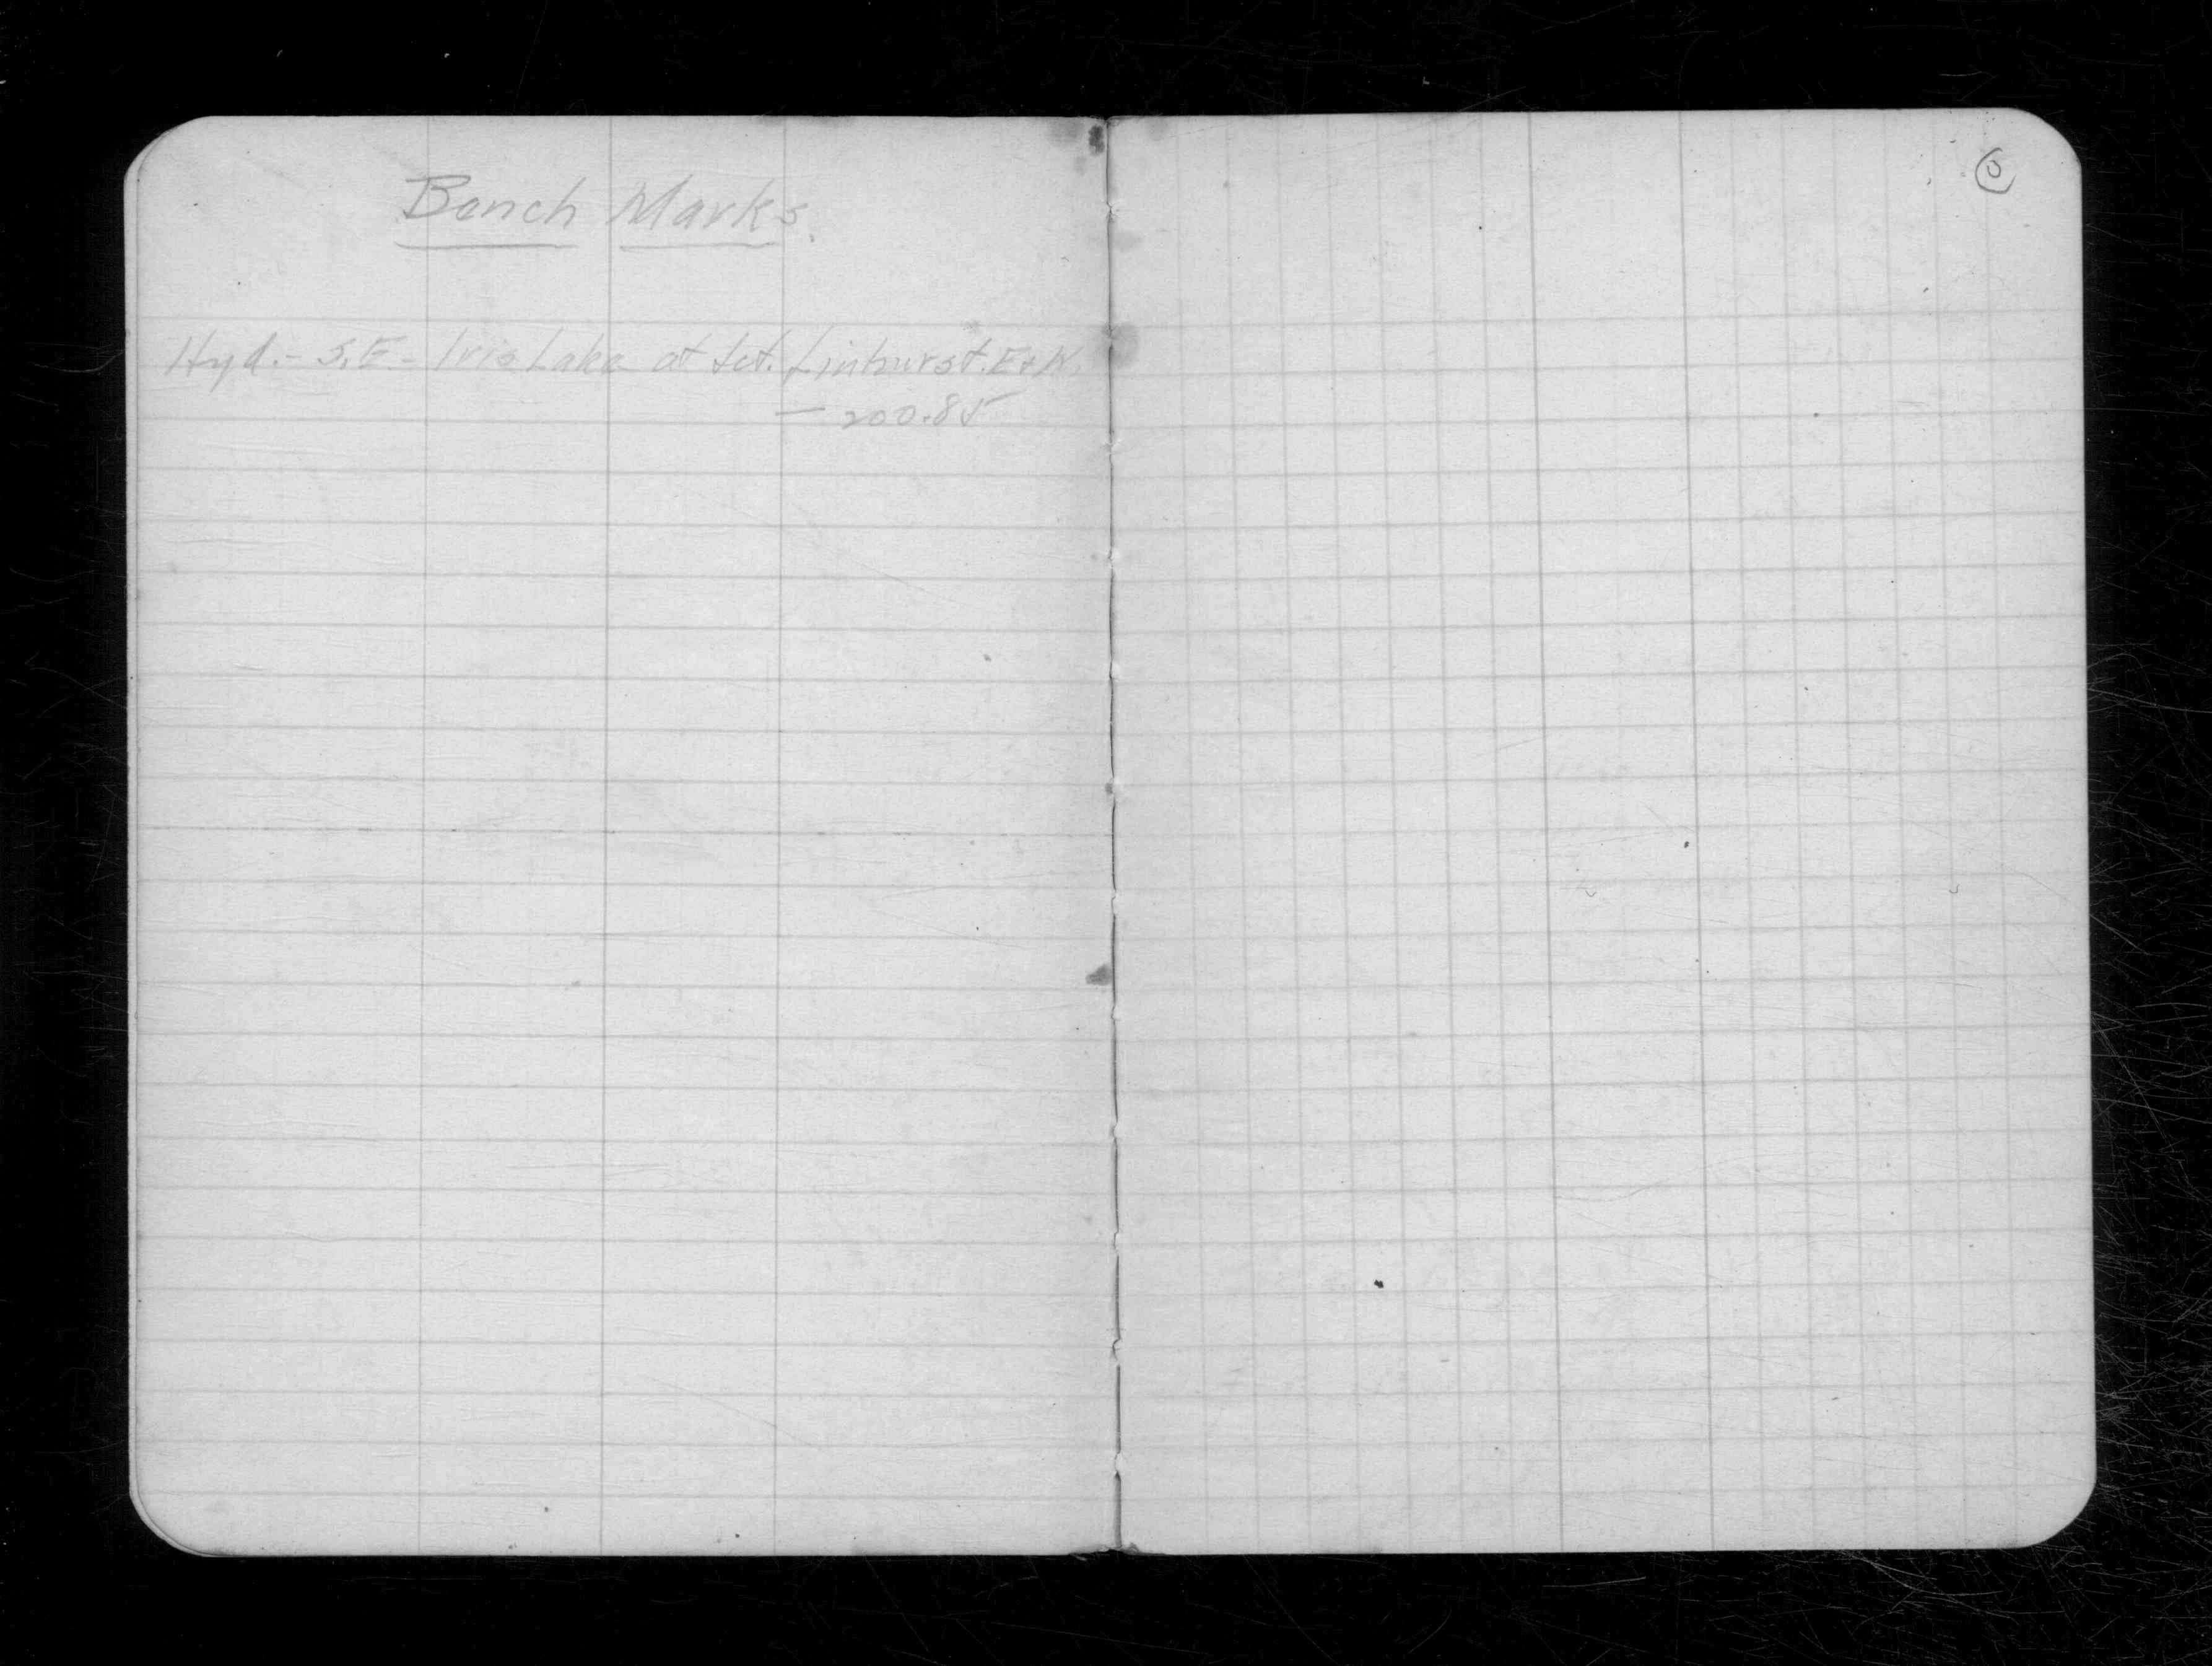 Bench Marks.
Hyd. - S.E. - Iris Lake at Jct. Linhurst. E + N.
— 200.85
0